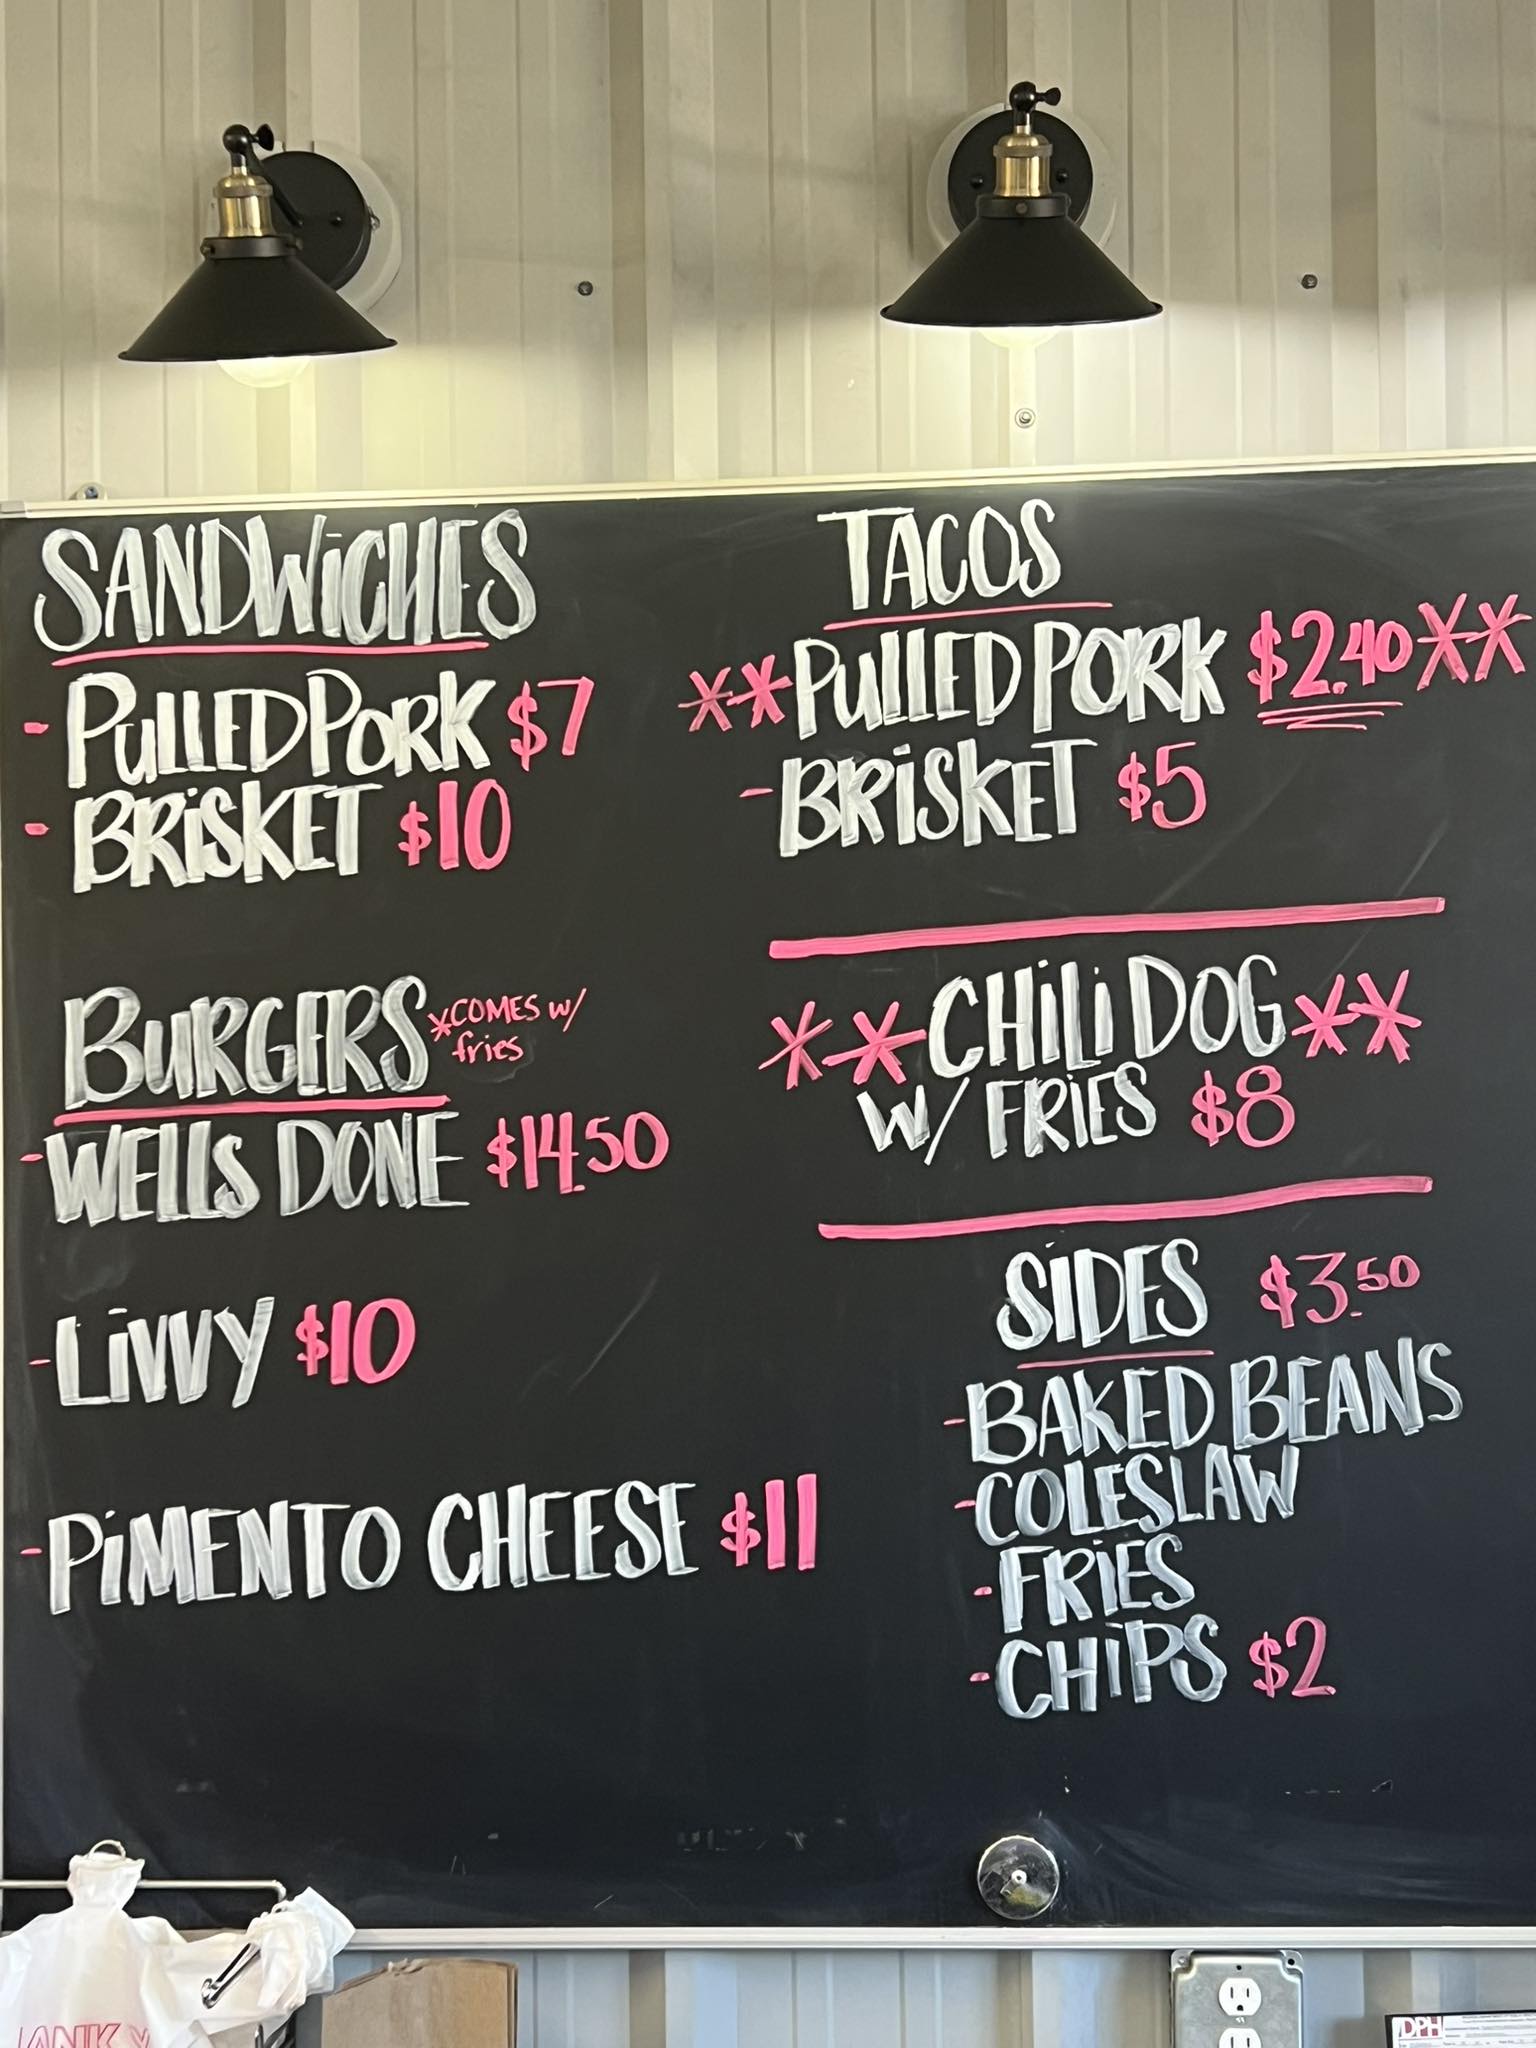 SANDWiCHES
- PULLED PORK $7
- BRiSKET $10
BURGERS *COMES w/
fries
- WELLS DONE $14.50
- LiVVY $10
- PiMENTO CHEESE $11
TACOS
**PULLED PORK $2.40**
- BRiSKET $5
**CHiLi DOG**
W/ FRiES $8
SiDES $3.50
- BAKED BEANS
- COLESLAW
- FRiES
- CHiPS $2
DPH